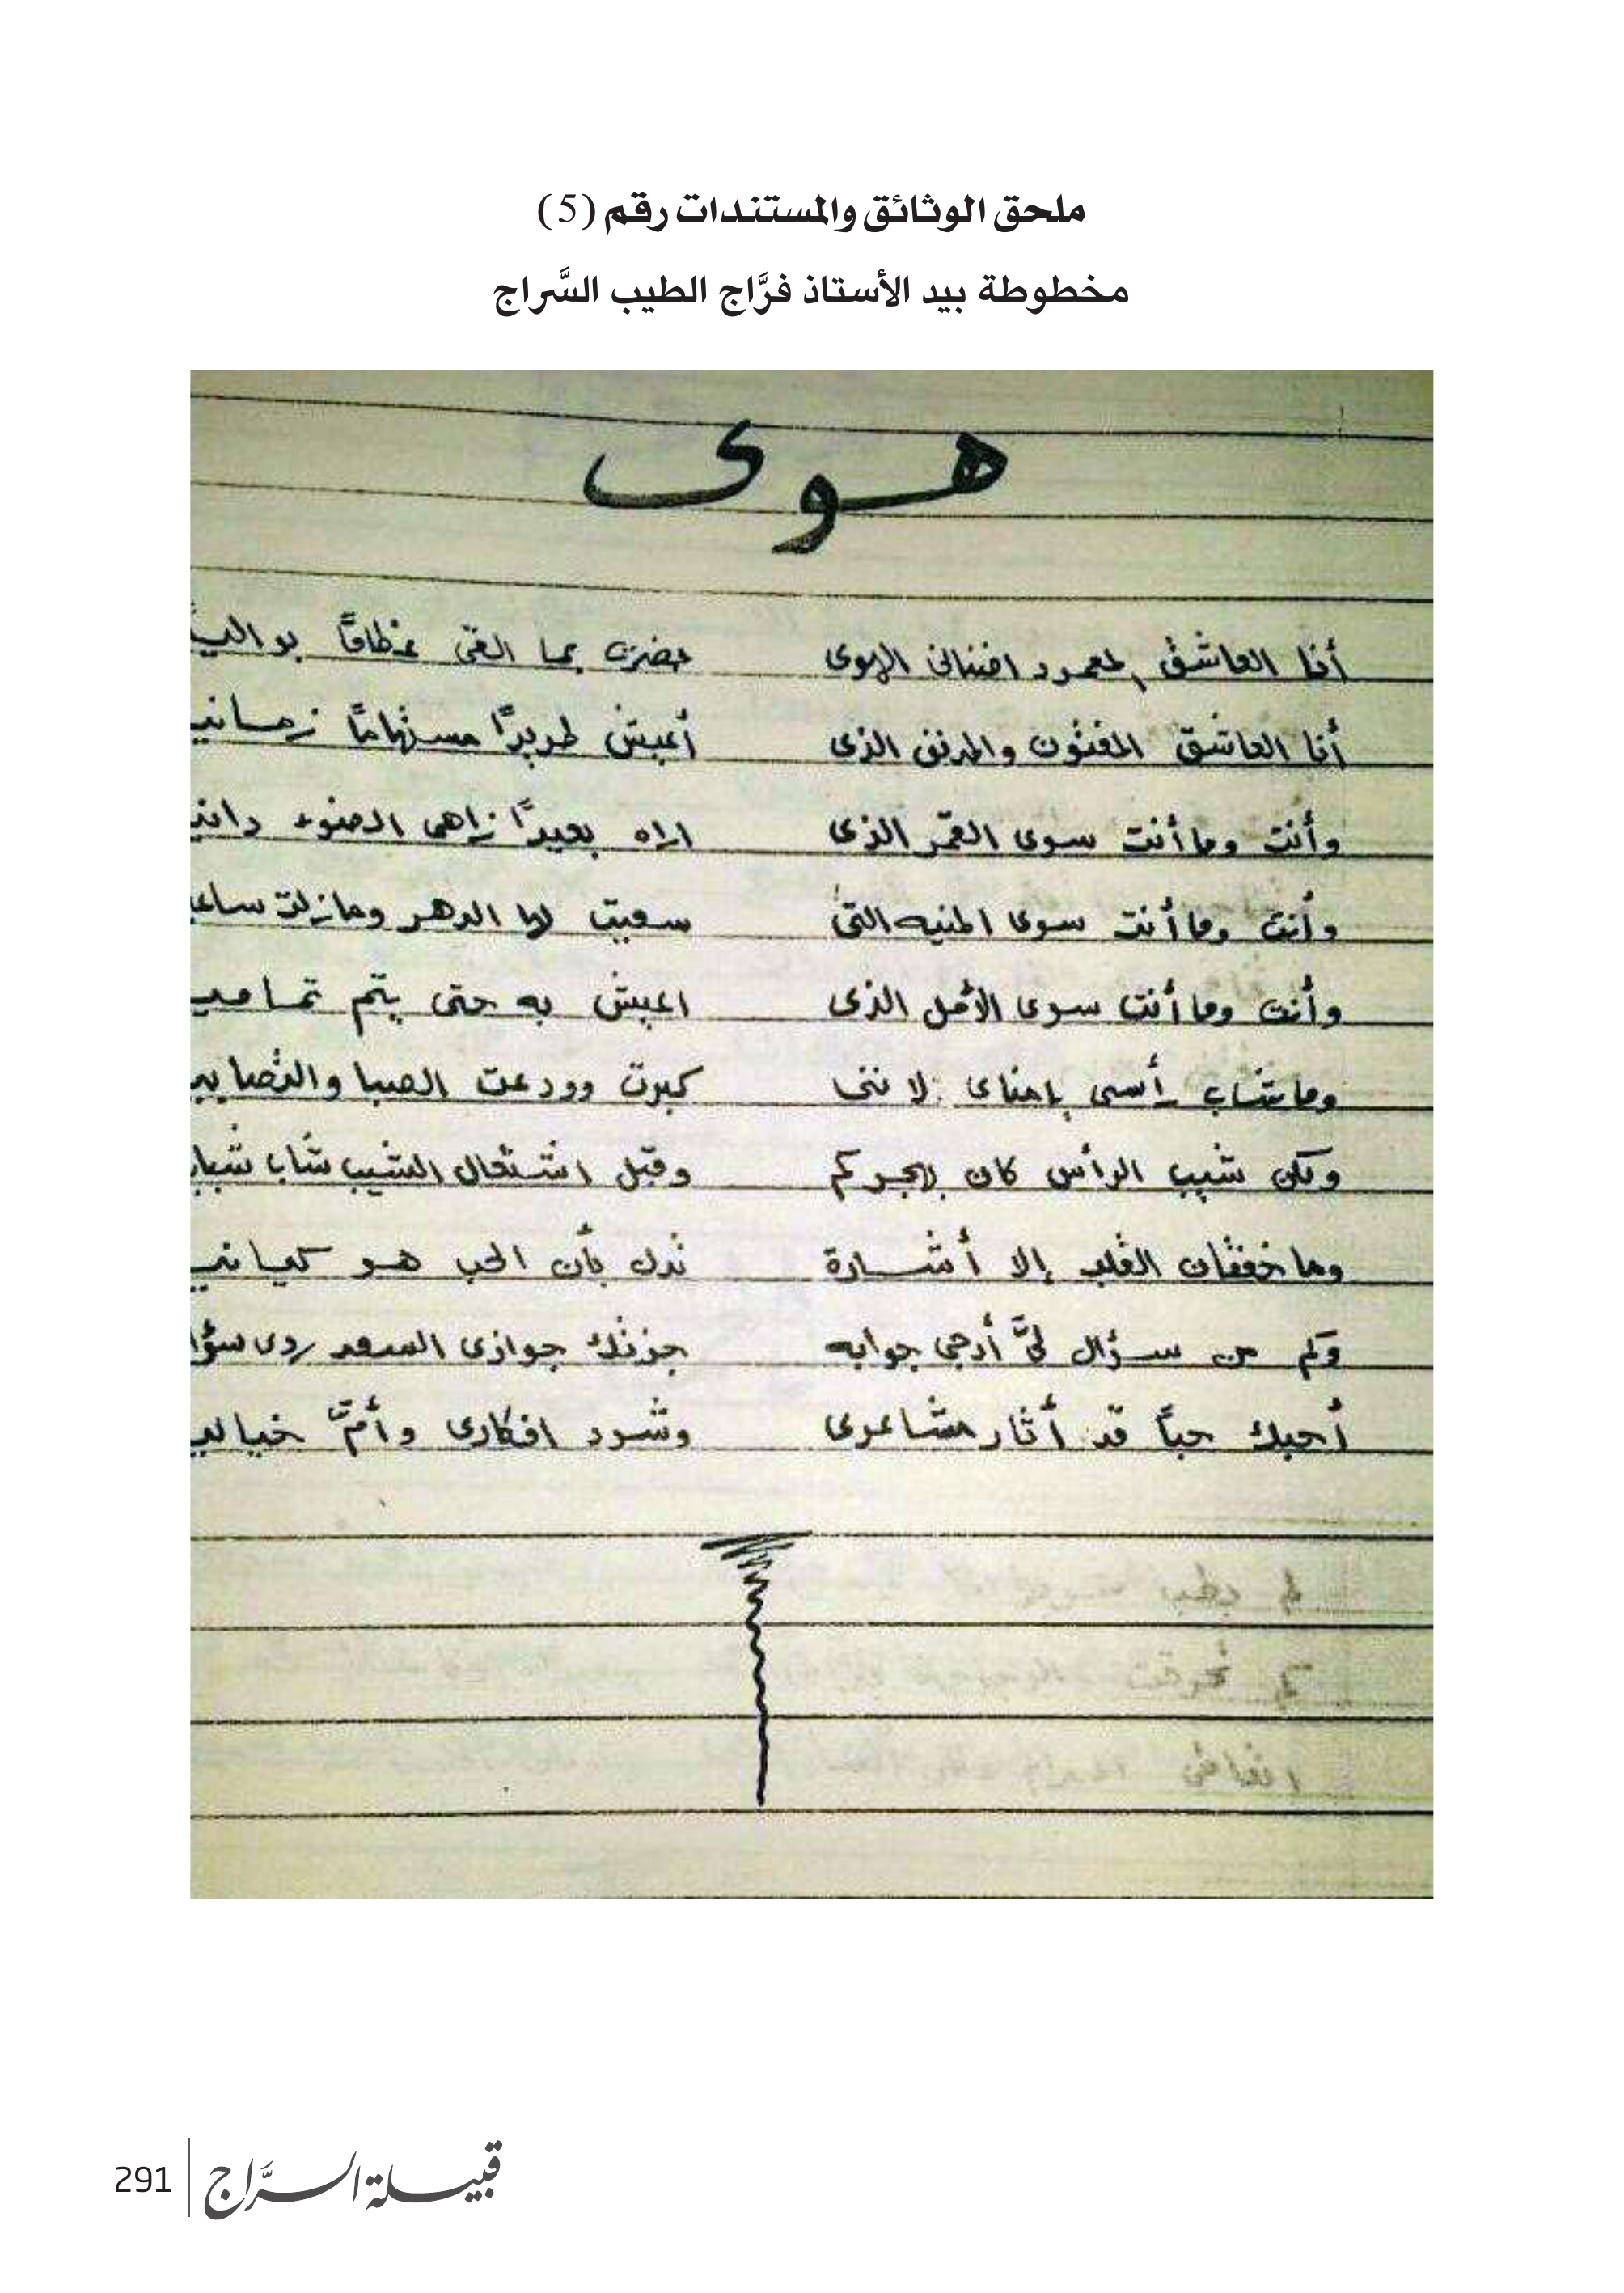 ملحق الوثائق والمستندات رقم (5)
مخطوطة بيد الأستاذ فرَّاج الطيب السَّراج
هوى
أنا العاشق المعمود افنانى الهوى بما القى عظامًا بواليـ
أنا العاشق المفتون والمدنف الذى أعيش طريدًا مستهامًا زمانيـ
وأنت وما أنت سوى القمر الذى اراه بعيدًا زاهى الضوء دانيـ
وأنت وما أنت سوى المنيه التى سعيت لها الدهر ومازلت ساعيـ
وأنت وما أنت سوى الأمل الذى اعيش به حتى يتم تماميـ
وما شاب رأسى ياهناى لاننى كبرت وودعت الصبا والتصابيـ
ولكن شيب الرأس كان بهجركم وقبل اشتعال الشيب شاب شبابـ
وما خفقان القلب إلا أشارة تدل بأن الحب هو كيانيـ
وكم من سؤال لىَّ أرجى جوابه جزتك جوازى السعد ردى سؤا
أحبك حباً قد أثار مشاعرى وشرد افكارى وأمَّ خياليـ
291 قبيلة السرَّاج